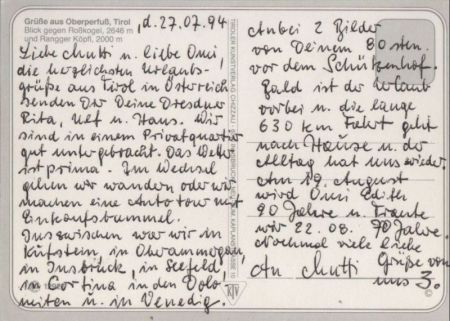 Grüße aus Oberperfuß, Tirol
Blick gegen Roßkogel, 2646 m
und Rangger Köpfl, 2000 m
, d. 27.07.94
Liebe Mutti u. liebe Omi,
die herzlichsten Urlaubs-
grüße aus Tirol in Österreich
senden Dir Deine Dresdner
Rita, Ulf u. Hans. Wir
sind in einem Privatquartier
gut untergebracht. Das Wetter
ist prima. Im Wechsel
gehen wir wandern oder wir
machen eine Autotour mit
Einkaufsbummel.
Inzwischen war wir in
Küfstein, in Oberammergau,
in Insbrück, in Seefeld,
in Cortina in den Dolo-
miten u. in Venedig.
TIROLER KUNSTVERLAG CHIZZALI
INNSBRUCK
Anbei 2 Bilder
von Deinem 80sten.
vor dem Schützenhof.
Bald ist der Urlaub
vorbei u. die lange
630 km Fahrt geht
nach Hause u. der
Alltag hat uns wieder.
Am 19. August
wird Omi Edith
90 Jahre u. Traute
wir 22.08. 70 Jahre.
Nochmal viele liebe
Grüße von
An Mutti
uns 3.